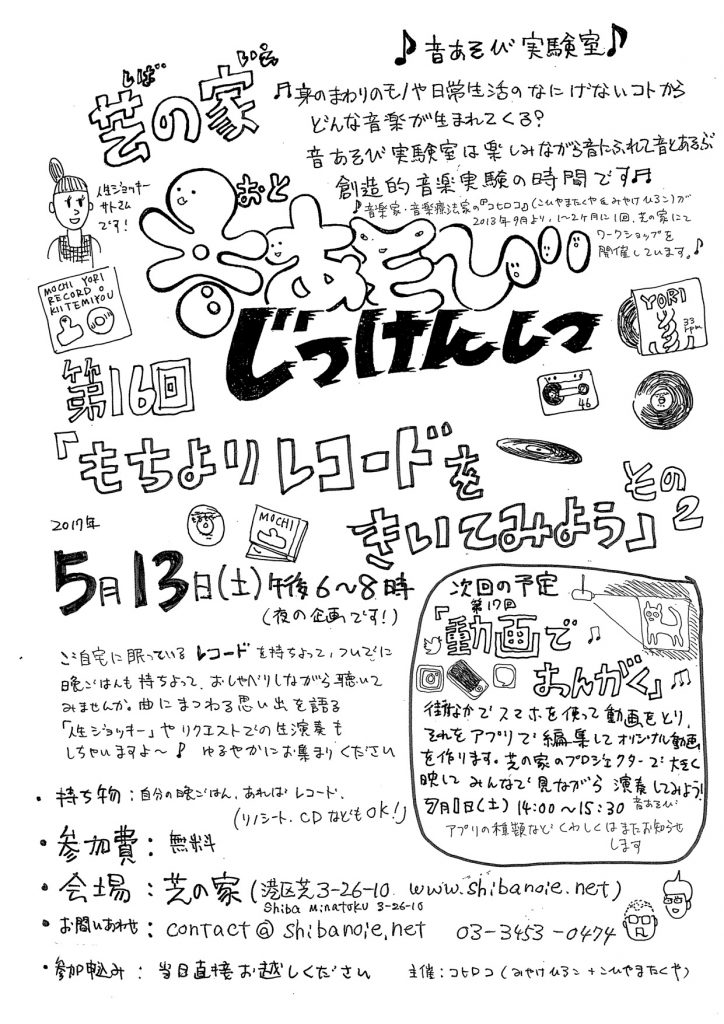 ♪音あそび実験室♪
しば いえ
芝の家
♬身のまわりのモノや日常生活のなにげないコトから
どんな音楽が生まれてくる?
音あそび実験室は楽しみながら音にふれて音とあそぶ
創造的音楽実験の時間です♬
♪音楽家・音楽療法家の『コヒロコ』(こひやまたくや&みやけひろこ)が
2013年9月より、1〜2ヶ月に1回、芝の家にて
ワークショップを
開催しています。♪
人生ジョッキー
サトマム
です!
おと
音あそび
じっけんしつ
MOCHI YORI
RECORD O
KIITEMIYOU
YORI
33
rpm
46
第16回
「もちよりレコードを
きいてみよう」その2
MOCHI
2017年
5月13日(土)午後6〜8時
(夜の企画です!)
ご自宅に眠っているレコードを持ちよって、ついでに
晩ごはんも持ちよって、おしゃべりしながら聴いて
みませんか。曲にまつわる思い出を語る
「人生ジョッキー」やリクエストでの生演奏も
しちゃいますよ〜♪ ゆるやかにお集まりください
次回の予定
第17回
「動画で
まおんがく」
街なかでスマホを使って動画をとり、
それをアプリで編集してオリジナル動画
を作ります。芝の家のプロジェクターで大きく
映してみんなで見ながら演奏してみよう!
7月1日(土) 14:00〜15:30 音あそび
アプリの種類などくわしくはまたお知らせ
します
・持ち物:自分の晩ごはん、あればレコード、
(ソノシート、CDなどもOK!)
・参加費:無料
・会場:芝の家(港区芝3-26-10 www.shibanoie.net)
Shiba Minatoku 3-26-10
・お問いあわせ:contact@shibanoie.net 03-3453-0474
・参加申込み:当日直接お越しください 主催:コヒロコ(みやけひろこ+こひやまたくや)